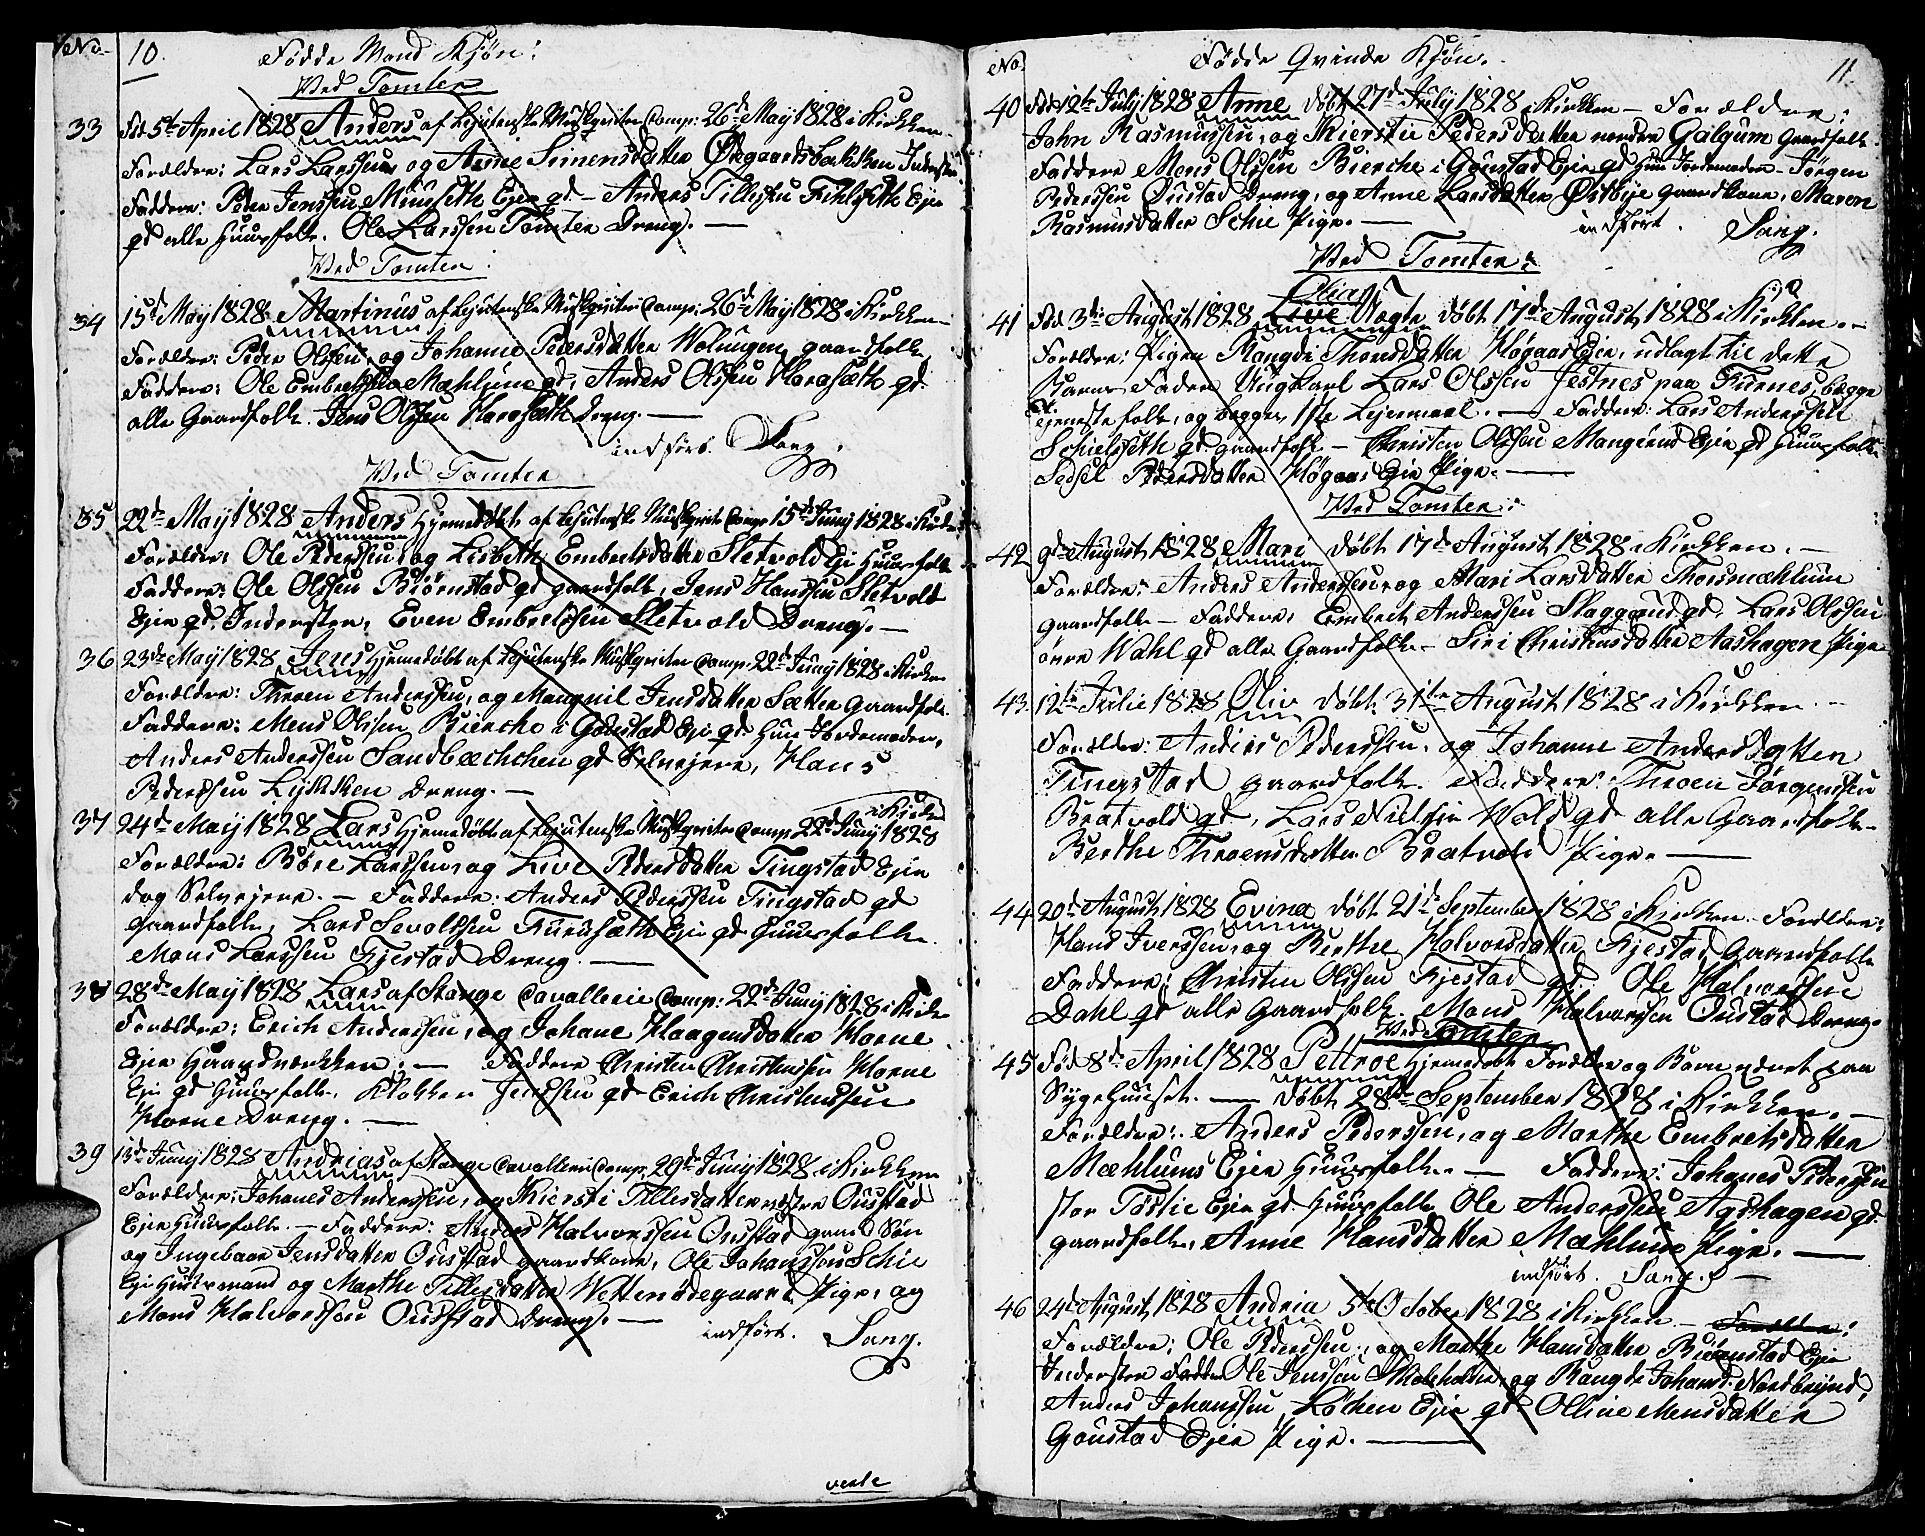 No 10. Fødde Mand Kjøn:
Ved Tomter
33 Fød 5te April 1828 Anders af Lejutenske Musqveiter Comp: 26de May 1828 i Kirken
Forældre: Lars Larssen og Anne Simensdatter Ødegaardsbakken Inderster
Faddere: Peder Jenssen Miniseth Eje gd. – Anders Tillessen Fihlseth Eje
gd alle Huusfolk. Ole Larssen Tomter Dreng. —
Ved Tomter.
34 15de May 1828 Martinus af Lejutenske Musqveiter Comp: 26de May 1828 i Kirken
Forældre: Peder Olssen, og Johanne Pedersdatter Wolungen gaardfolk
Faddere: Ole Embretssen Mæhlum gd, Anders Olssen Harasæth gd.
alle Gaardfolk. Jens Olssen Harasæth Dreng. —
indført. Sang.
Ved Tomter
35 22de May 1828 Anders Hjemedøbt af Lejutenske Musqveite Comp 15de Juny 1828 i Kirken
Forældre: Ole Pederssen, og Lisbeth Embretsdatter Sletvold Eje Huusfolk
Faddere: Ole Olssen Biørnstad gd gaardfolk, Jens Hanssen Sletvold
Eje gd. Inderster, Even Embretssen Sletvold Dreng. —
36 23de May 1828 Jens Hjemedøbt af Lejutenske Musqveiter Comp: 22de Juny 1828 i Kirken
Forældre: Throen Anderssen, og Jensdatter Sætter Gaardfolk.
Faddere: Mons Olssen Bierche i Gaustad Eje gd. Hun Jordemoder,
Anders Anderssen Sandbæchchen gd Selvejere, Hans
Pederssen Lykken Dreng. —
i Kirken
37 24de May 1828 Lars Hjemedøbt af Lejutenske Musqveiter Comp. 22de Juny 1828
Forældre: Børe Larssen, og Live Pedersdatter Tingstad Eje
dog Selvejere. — Faddere: Anders Pederssen Tingstad gd
gaardfolk, Lars Sevoldssen Furusæth Eje gd Huusfolk.
Mons Larssen Fjestad Dreng. —
38 28de May 1828 Lars af Stange Cavallerie Comp: 22de Juny 1828 i Kirken
Forældre: Erich Anderssen, og Johane Haagensdatter Horne
Eje Haandværker. — Faddere Christen Christenssen Horne
Eje gd Huusfolk, Klokker Jenssen gd Erich Christenssen
Horne Dreng. —
39 13de Juny 1828 Andrias af Stange Cavalleri Comp. 29de Juny 1828 i Kirkken
Forældre: Johanes Anderssen, og Kiersti Tillesdatter nedre Oustad
Eje Huusfolk. — Faddere: Anders Halvorssen Oustad gaard Søn
og Ingebaar Jensdatter Oustad gaardkone, Ole Johanssen Schie
Eje Huusmand og Marthe Tillesdatter Wettenødegaard Pige, og
Mons Halvorssen Oustad Dreng. —
indført. Sang.
vente
No Fødde Qvinde Kjøn. 11.
40 Fød 12te July 1828 Anne døbt 27de July 1828 i Kirkken — Forældre:
John Rasmussen, og Kierstie Pedersdatter nordre Galgum gaardfolk.
Faddere Mons Olssen Bierche i Gaustad Eje gd Hun Jordemoder — Jørgen
Pederssen Oustad Dreng, og Anne Larsdatter Østbye gaardkone, Maren
Rasmusdatter Schie Pige. —
indført. Sang.
Ved Tomter:
Olia
41 Fød 3die August 1828 Live Uægte døbt 17de August 1828 i Kirkken. —
Forældre: Pigen Rangdi Thorsdatter Høgaas Eje, udlagt til dette
Barns Fader Ungkarl Lars Olssen Jestnes paa Furnes, begge
Tjenestefolk, og begges 1ste Lejermaal. — Faddere: Lars Anderssen
Schielseth gd gaardfolk — Christen Olssen Mangerud Eje gd Huusfolk
Sedsel Pedersdatter Høgaas Eje Pige. —
Ved Tomter:
42 9de August 1828 Mari døbt 17de August 1828 i Kirkken. —
Forældre: Anders Anderssen, og Mari Larsdatter Thorsmæhlum
gaardfolk — Faddere: Embret Anderssen Skaggerud gd. Lars Olssen
øvre Wahl gd alle Gaardfolk — Siri Christensdatter Aashagen Pige
43 12te Julie 1828 Oliv døbt 31te August 1828 i Kirkken. —
Forældre: Anders Pederssen, og Johanne Andersdatter
Tingstad gaardfolk. Faddere: Throen Jørgenssen
Bratvold gd, Lars Nielssen Wold gd alle Gaardfolk —
Berthe Throensdatter Bratvold Pige. —
44 20de August 1828 Evina døbt 21de September 1828 i Kirkken. Forældre:
Hans Iverssen, og Berthe Halvorsdatter Fjestad Gaardfolk
Faddere: Christen Olssen Fjestad gd. Ole Halvorssen
Dahl gd alle Gaardfolk. Mons Halvorssen Oustad Dreng.
Ved Tomter
45 Fød 8de April 1828 Pettroe Hjemedøbt Forældre og Barn været paa
Sygehuuset. — døbt 28de September 1828 i Kirkken. —
Forældre: Anders Pederssen, og Marthe Embretsdatter
Mæhlums Eje Huusfolk. — Faddere: Johanes Pederssen
stor Tøslie Eje gd. Huusfolk, Ole Anderssen Aashagen gd.
gaardfolk, Anne Hansdatter Mæhlum Pige. —
indført. Sang. —
46 24de August 1828 Andria 5te October 1828 i Kirkken — Forældre:
Forældre: Ole Pederssen, og Marthe Hansdatter Biønstad Eje
Inderster Faddere Ole Jenssen og Rangdi Johansd: Nordbrynd,
Anders Johanssen Løken Eje gd. Olline Monsdatter
Gaustad Eje Pige. —